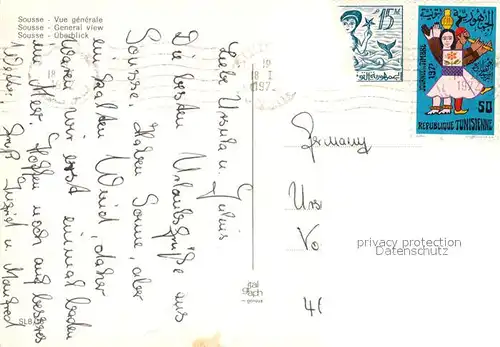 Sousse - Vue générale
Sousse - General view
Sousse - Überblick
Liebe Ursula u. Julius
Die besten Urlaubsgrüße aus
Sousse. Haben Sonne, aber
ein kalten Wind, daher
waren wir erst einmal baden
im Meer. Hoffen noch auf besseres
Wetter. Gruß Ingrid u. Manfred
18 I
197
15 M
1971
50
REPUBLIQUE TUNISIENNE
Germany
Urs
Vo
41
privacy protection
Datenschutz
ital
graph